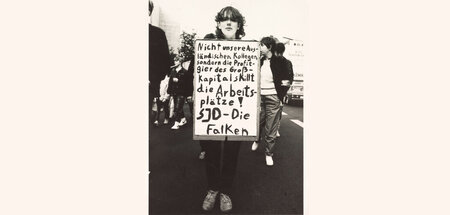 Nicht unsere Aus-
ländischen Kollegen
sondern die Profit-
gier des Groß-
kapitals killt
die Arbeits-
plätze!
SJD-Die
Falken